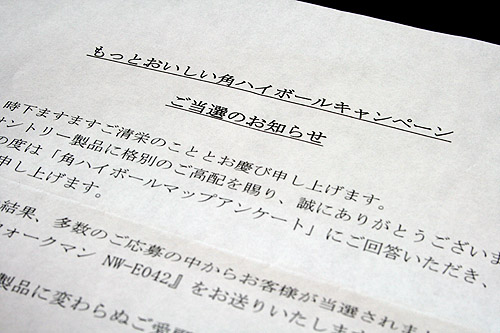 もっとおいしい角ハイボールキャンペーン
ご当選のお知らせ
時下ますますご清栄のこととお慶び申し上げます。
ントリー製品に格別のご高配を賜り、誠にありがとうございま
の度は「角ハイボールマップアンケート」にご回答いただき、
申し上げます。
結果、多数のご応募の中からお客様が当選されま
ォークマン NW-E042』をお送りいたします
製品に変わらぬご愛